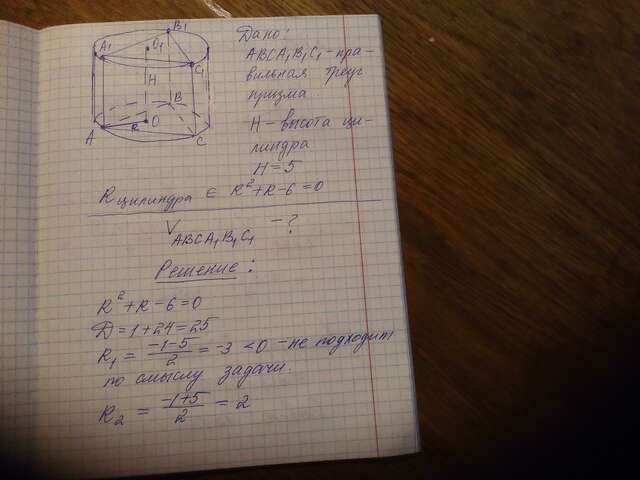 B1
A1
O1
C1
H
B
A
R
O
C
Дано:
ABCA1B1C1 - пра-
вильная треуг
призма
H - высота ци-
линдра
H = 5
R цилиндра ∈ R²+R-6=0
V ABCA1B1C1 - ?
Решение:
R²+R-6=0
D=1+24=25
R1 = (-1-5)/2 = -3 <0 - не подходит
по смыслу задачи.
R2 = (-1+5)/2 = 2